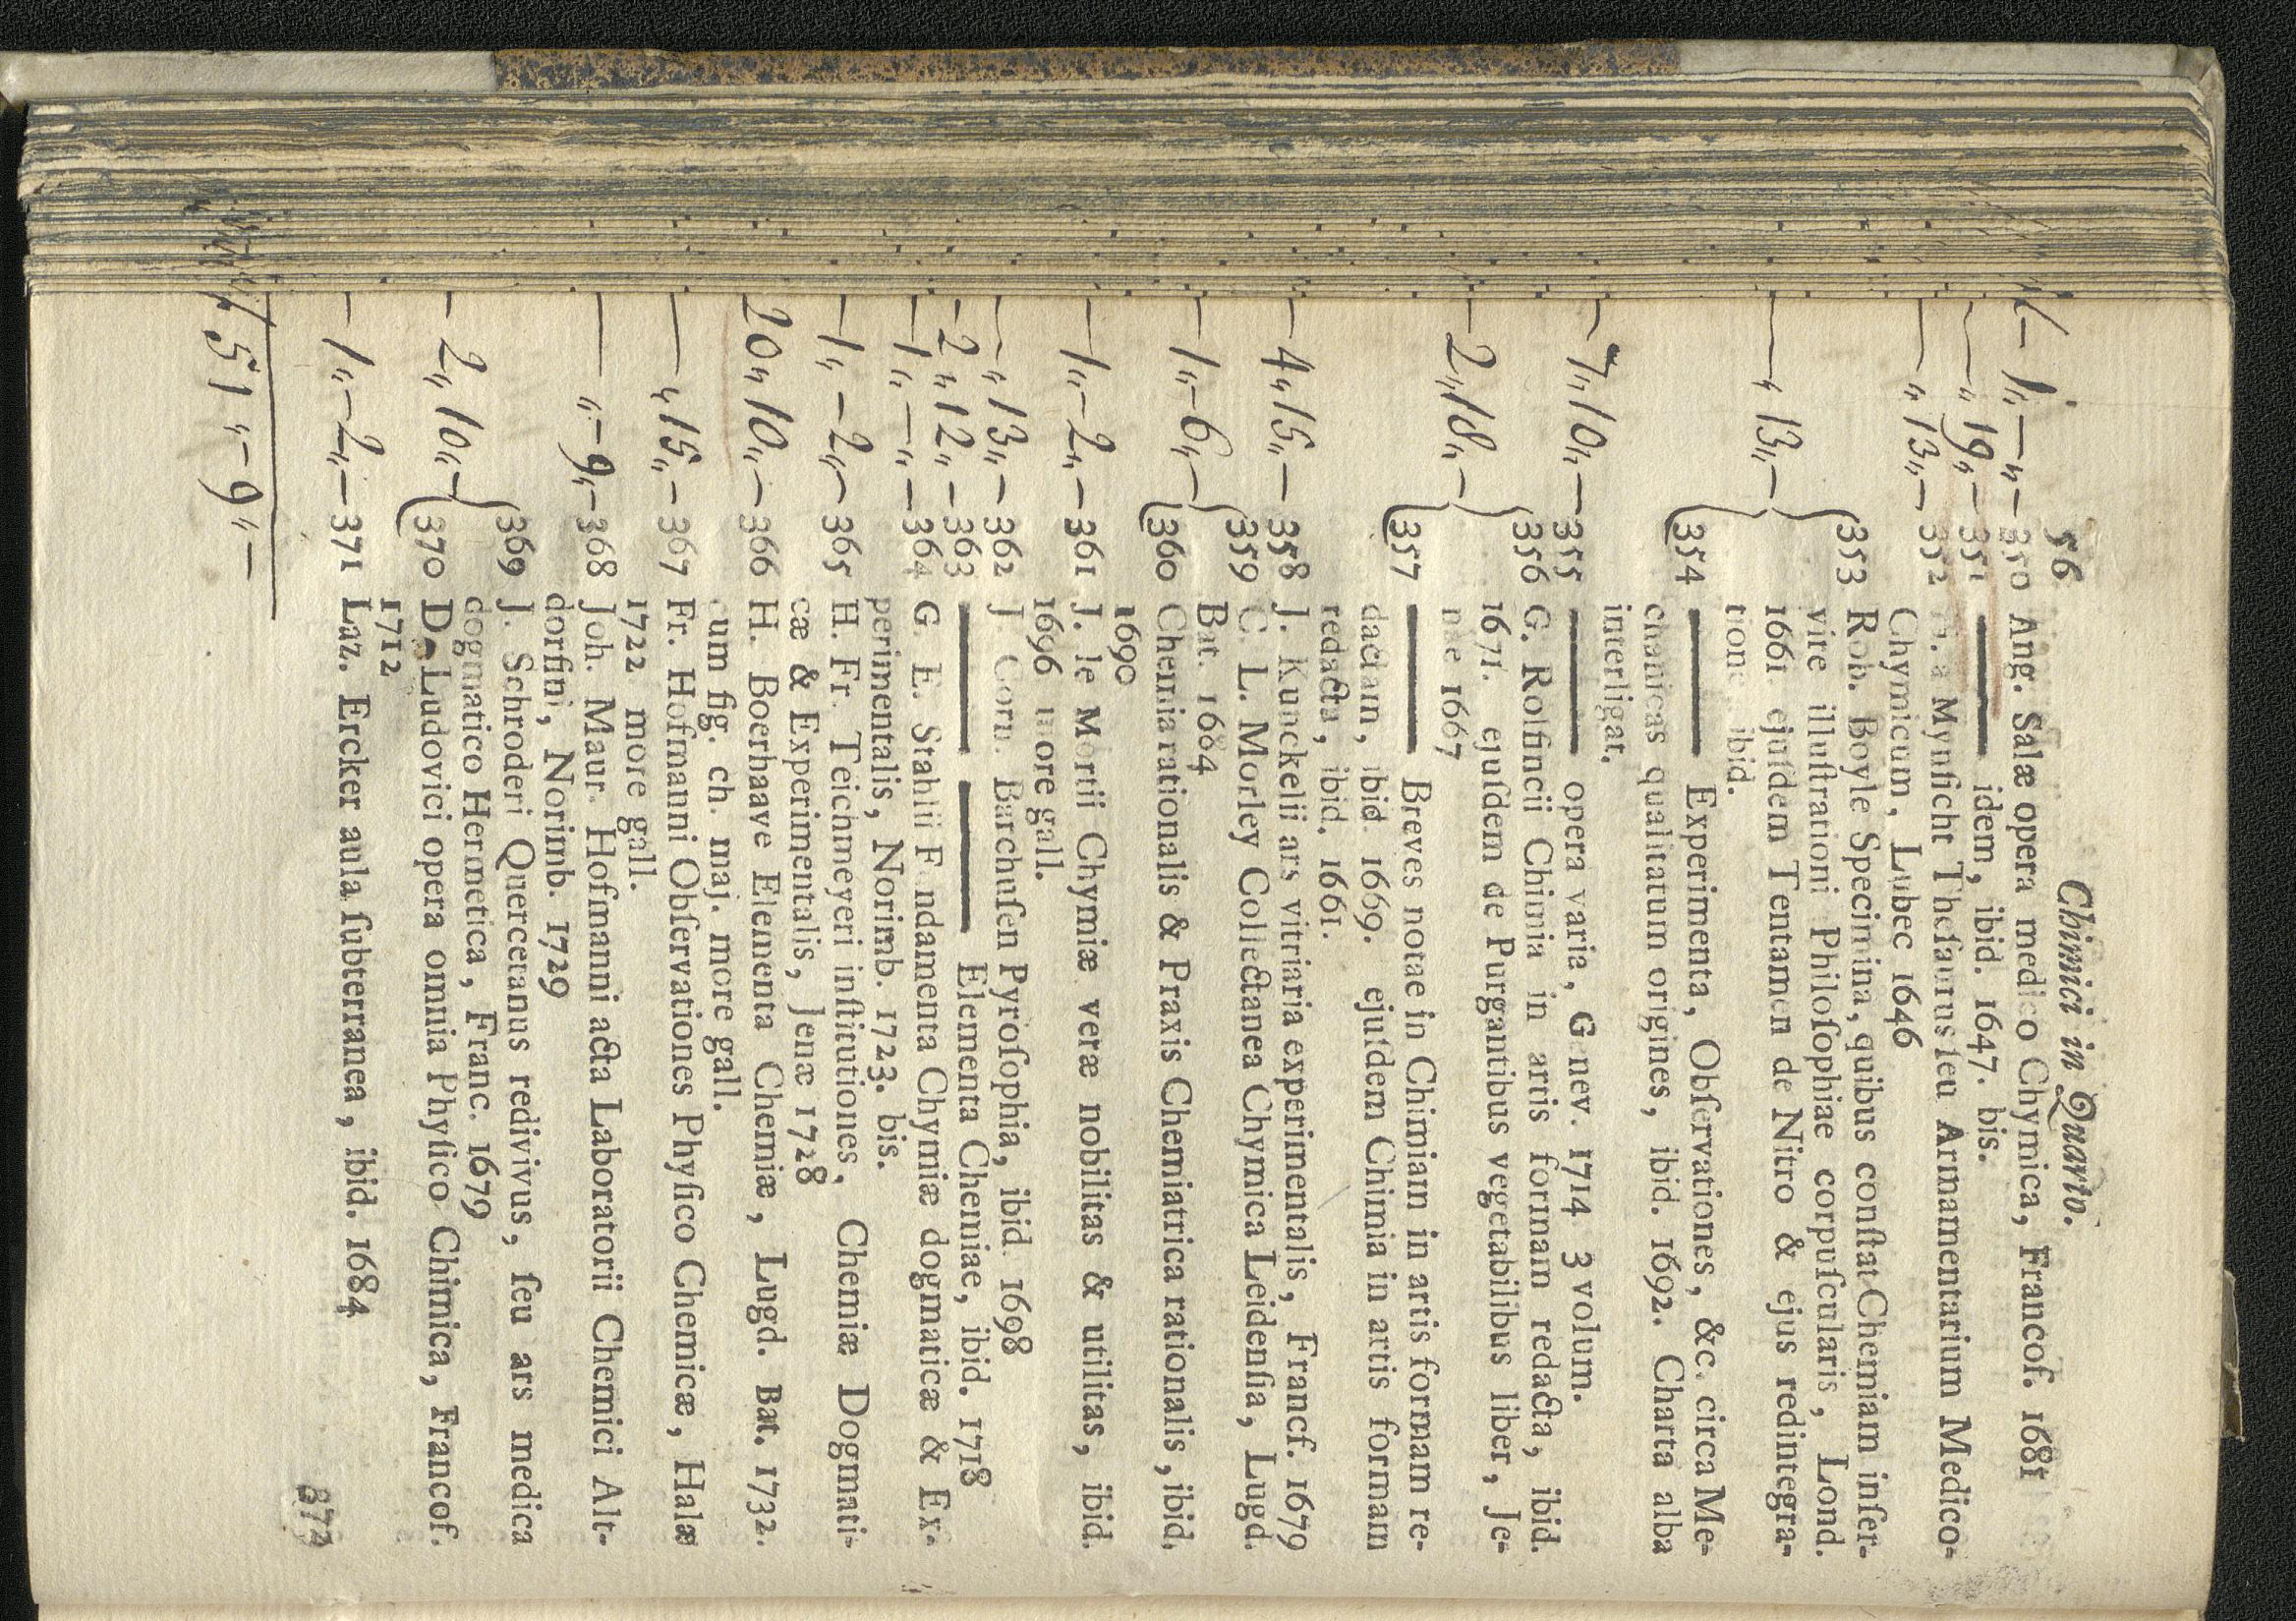 56 Chimici in Quarto.
1 „ — „ — 350 Ang. Salæ opera medico Chymica, Francof. 1681
— „ 19 „ — 351 —— idem, ibid. 1647. bis.
— „ 13 „ — 352 a Mynſicht Theſaurus ſeu Armamentarium Medico-
Chymicum, Lubec 1646
353 Rob. Boyle Specimina, quibus conſtat Chemiam inſer-
vire illuſtrationi Philoſophiae corpuſcularis, Lond.
— „ 13 „ — 1661 ejuſdem Tentamen de Nitro & ejus redintegra-
tione ibid.
354 —— Experimenta, Obſervationes, &c. circa Me-
chanicas qualitatum origines, ibid. 1692. Charta alba
interligat.
— 7 „ 10 „ — 355 —— opera varia, Genev. 1714 3 volum.
356 G. Rolfincii Chimia in artis formam redacta, ibid.
— 2 „ 18 „ — 1671. ejuſdem de Purgantibus vegetabilibus liber, Je-
nae 1667
357 —— Breves notae in Chimiam in artis formam re-
dactam, ibid. 1669. ejuſdem Chimia in artis formam
redacta, ibid. 1661.
— 4 „ 15 „ — 358 J. Kunckelii ars vitriaria experimentalis, Francf. 1679
359 C. L. Morley Collectanea Chymica Leidenſia, Lugd.
— 1 „ — 6 „ — Bat. 1684
360 Chemia rationalis & Praxis Chemiatrica rationalis, ibid.
1690
— 1 „ — 2 „ — 361 J. le Mortii Chymiæ veræ nobilitas & utilitas, ibid.
1696 more gall.
— „ 13 „ — 362 J. Corn. Barchuſen Pyroſophia, ibid. 1698
— 2 „ 12 „ — 363 —— —— Elementa Chemiae, ibid. 1718
— 1 „ — „ — 364 G. E. Stahlii Fundamenta Chymiæ dogmaticæ & Ex-
perimentalis, Norimb. 1723. bis.
— 1 „ — 2 „ — 365 H. Fr. Teichmeyeri inſtitutiones, Chemiæ Dogmati-
cæ & Experimentalis, Jenæ 1728
20 „ 10 „ — 366 H. Boerhaave Elementa Chemiæ, Lugd. Bat. 1732.
cum fig. ch. maj. more gall.
— „ 15 „ — 367 Fr. Hofmanni Obſervationes Phyſico Chemicæ, Halæ
1722 more gall.
— „ — 9 „ — 368 Joh. Maur. Hofmanni acta Laboratorii Chemici Alt-
dorfini, Norimb. 1729
369 J. Schroderi Quercetanus redivivus, ſeu ars medica
dogmatico Hermetica, Franc. 1679
— 2 „ 10 „ — 370 D. Ludovici opera omnia Phyſico Chimica, Francof.
1712
— 1 „ — 2 „ — 371 Laz. Ercker aula ſubterranea, ibid. 1684
51 „ — 9 „ —
872